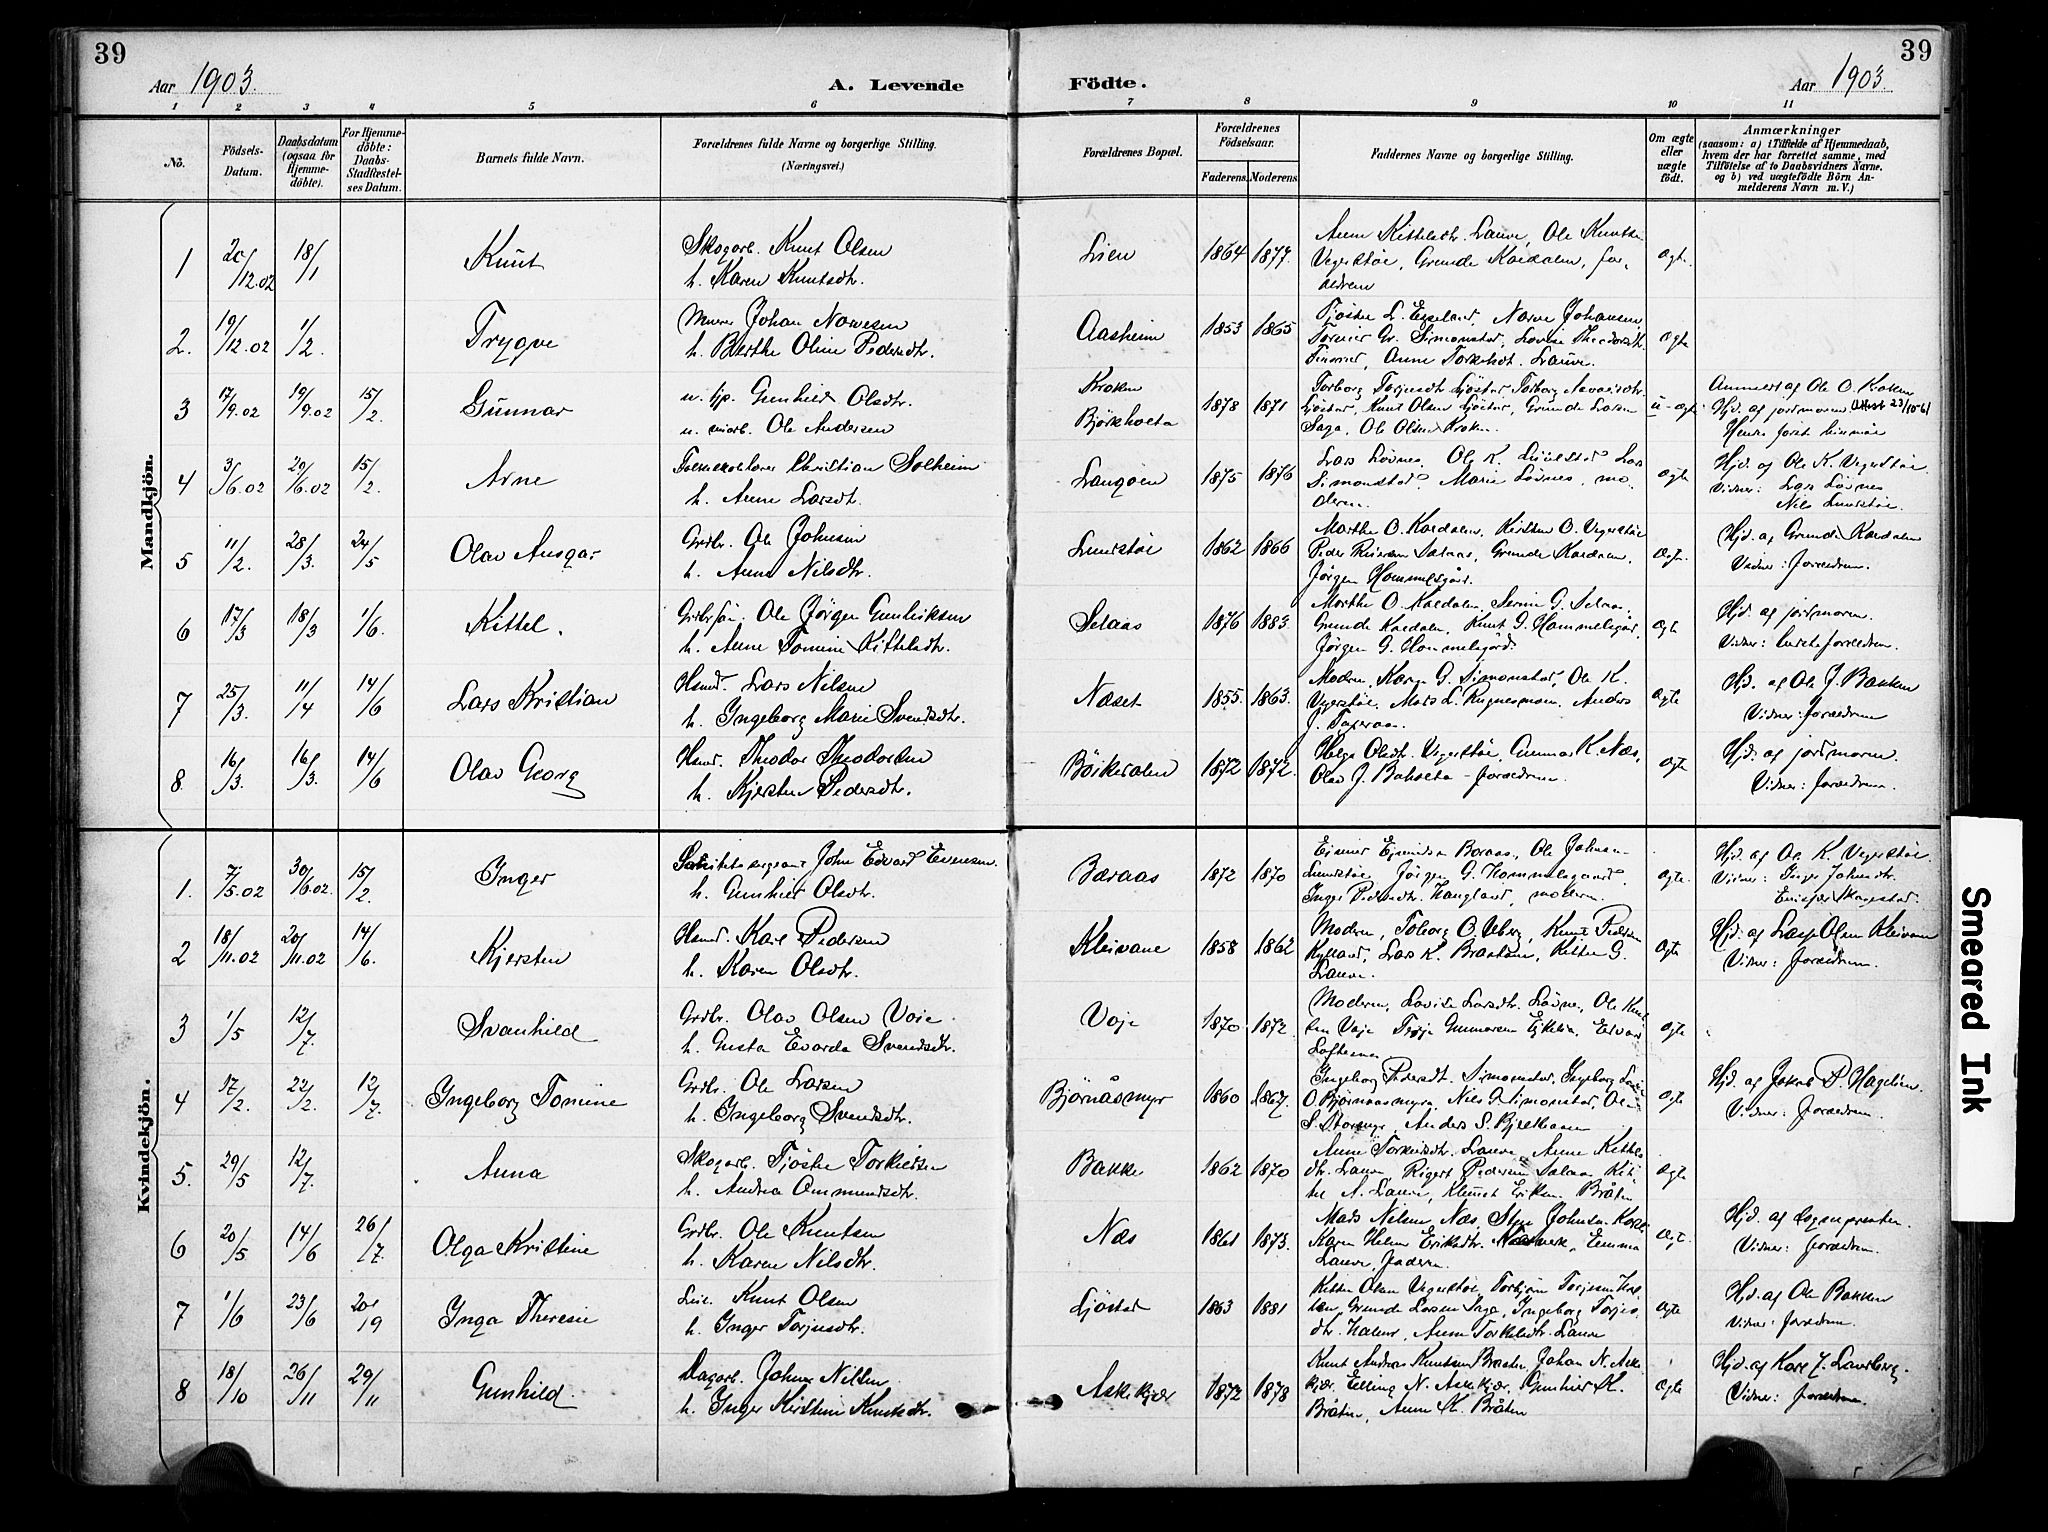 39
39
Aar 1903.
A. Levende
Födte.
Aar 1903.
1 2 3 4 5 6 7 8 9 10 11
No.
Födsels-Datum.
Daabsdatum (ogsaa for Hjemmedöbte).
For Hjemmedöbte: Daabs-Stadfæstelses Datum.
Barnets fulde Navn.
Forældrenes fulde Navne og borgerlige Stilling. (Næringsvei.)
Forældrenes Bopæl.
Forældrenes Födselsaar.
Faderens. Moderens.
Faddernes Navne og borgerlige Stilling.
Om ægte eller uægte födt.
Anmærkninger (saasom: a) i Tilfælde af Hjemmedaab, hvem der har forrettet samme, med Tilföielse af to Daabsvidners Navne, og b) ved uægtefödte Börn Anmelderens Navn m. V.)
Mandkjön.
1 20/12.02 18/1 Knut
Skogarb. Knut Olsen
h. Karen Knutsdtr.
Lien 1864 1877.
Anne Kittelsdtr. Lauve, Ole Knutsen
Vegerstøe, Grunde Kaldalen, for-
ældrene
Ægte.
2. 19/12.02 1/2. Trygve
Murer Johan Narvesen
h. Berthe Oline Pedersdtr.
Aasheim 1853 1865
Tjøstel L. Espeland, Narve Johansen,
Gr. Simonstad, Lovise Theodorsdtr.
Anne Torkelsdt. Lauve.
Ægte
3 17/9.02 19/9.02 15/2. Gunnar
u. tjp. Gunhild Olsdtr.
u. Ole Andersen
Kroken
Bjørkholta
1878 1871
Torborg Torjusdtr Ljøstad, Torborg
Ljøstad, Knut Olsen Ljøstad, Grunde Larsen
Saga, Ole Olsen Kroken.
u-ægte
Anmeldt af Ole O. Kroken
Hjd. af jordmoren Attest 23/10 61
4 3/6.02 29/6.02 15/2. Arne
Christian Solheim
h. Anne Larsdt.
Langøen 1875 1876
Lars Løvnes, Ole K. Lars
Simonstad, Marie Løvnes, mo-
deren.
Ægte
Hjd. af Ole K. Vegerstøe.
Vidner: Lars Løvnes
Nils Lundstøe.
5 11/2. 28/3. 24/5 Olav Ansgar
Grdbr. Ole Johnsen
h. Anne Nilsdtr.
Lundstøe 1862 1866
Marthe O. Kaldalen, Kirsten O. Vegerstøe
Peder Selaas, Grunde Kaldalen,
Jørgen Hommelsgård.
Ægte.
Hjd. af Grunde Kaldalen
Vidner: Forældrene.
6 17/3 18/3 1/6. Kittel.
Grdbrsøn. Ole Jørgen Gunleiksen
h. Anne Tomine Kittelsdtr.
Selaas 1876 1883
Marthe O. Kaldalen, G. Selaas,
Grunde Kaldalen, Knut G. Hommelsgård,
Jørgen G. Hommelsgård.
Ægte
Hjd. af jordmoren.
Vidner: forældrene.
7 25/3. 11/4 14/6 Lars Kristian
Hsmd. Lars Nilsen
h. Ingeborg Marie Svendsdtr.
Næset 1855. 1863.
Moderen, Karen G. Simonstad, Ole K.
Vegerstøe, Mads L. Rugnesmoen, Anders
J.
Ægte
Hjd. af Ole J. Bakken
Vidner: forældrene
8. 16/3. 16/3. 14/6 Olav Georg
Hsmd. Theodor Theodorsen
h. Kjersten Pedersdtr.
Böikedalen 1872 1872.
Helga Olsdtr. Vegerstøe, Gunnar K. Næs,
Olav J. - forældrene.
Ægte
Hjd. af jordmoren.
Vidner: forældrene.
Kvindekjön.
1. 7/5.02 30/6.02. 15/2. Inger
Sanitetssergeant John Edvard Evensen.
h. Gunhild Olsdtr.
Børaas 1872 1870
Boraas, Ole Johnsen
Lundstøe, Jørgen G. Hommelsgaard,
Inger Pedersdtr. Haugland, moderen.
Ægte.
Hjd. af Ole K. Vegerstøe.
Vidner: Inger Johnsdtr.
Skogstad.
2 18/11.02 20/11.02 14/6. Kjersten
Hsmd. Karl Pedersen
h. Karen Olsdtr.
Kleivane 1858 1862
Moderen, Toborg O. Ueberg, Knut Pedersen
Kylland, Lars K. Brastøen, Kittel G.
Lauve.
Ægte
Hjd. af Olsen Kleivane
Vidner: Forældrene.
3 1/5 12/7. Svanhild
Grdbr. Olav Olsen Voie.
h. Gusta Evarda Svendsdtr.
Voje 1870 1872.
Moderen, Lovise Larsdtr. Løvne, Ole Knut-
sen Voje Gunnarsen Edvard
Ægte
4 17/2. 22/2. 12/7. Ingeborg Tomine
Grdbr. Ole Larsen
h. Ingeborg Svendsdtr.
Bjørnåsmyr 1860 1867.
Ingeborg Pedersdt. Simonstad, Ingeborg
O Bjørnaasmyra, Nils G. Simonstad, Ole
S. Anders S.
Ægte
Hjd. af Jakob P. Hagelin.
Vidner: Forældrene.
5. 29/5 12/7. Anna
Skogarb. Tjøstel Torkildsen
h. Andrea Ommundsdtr.
Bakke 1862 1870
Anne Torkildsdtr. Lauve, Anne Kittels-
dtr. Lauve, Rigert Pedersen Selaas, Kit-
tel A. Lauve, Knut Eriksen Bråten
Ægte
6 20/5 14/6 26/7. Olga Kristine
Grdbr. Ole Knutsen
h. Karen Nilsdtr.
Næs 1861 1873.
Mads Nilsen Næs, Johnsen
Karen Helene Eriksdtr. Næsverk, Emma
Lauve, faderen.
Ægt.
Hjd. af sognepresten.
Vidner: forældrene.
7 1/6 23/6 20/19 Inga Theresie
Leil. Knut Olsen
h. Inger Torjusdtr.
Ljøstad 1863 1881
Kittel Olsen Vegerstøe, Torbjørn Torjusen
Grunde Larsen Saga, Ingeborg Torjus-
dtr. Anne Torkelsdtr. Lauve
Ægte
Hjd. af Ole Bakken
Vidner: Forældrene.
8 18/10 26/11 29/11 Gunhild
Dagarb. Johan Nilsen
h. Inger Kristine Knutsdtr.
Askekjær 1872 1878
Knut Andreas Knutsen Braaten, Johan N. Aske-
kjær, Elling N. Askekjær, Gunhild K.
Bråten, Anne K. Bråten
Ægte
Hjd. af Kare J. Laurberg.
Vidner: Forældrene.
Smeared Ink